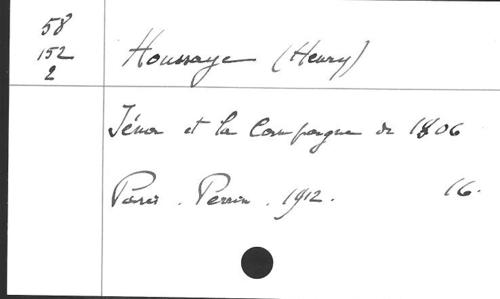 58
152
2
Houssaye (Henry)
Iéna et la Campagne de 1806
Paris. Perrin. 1912. 16.